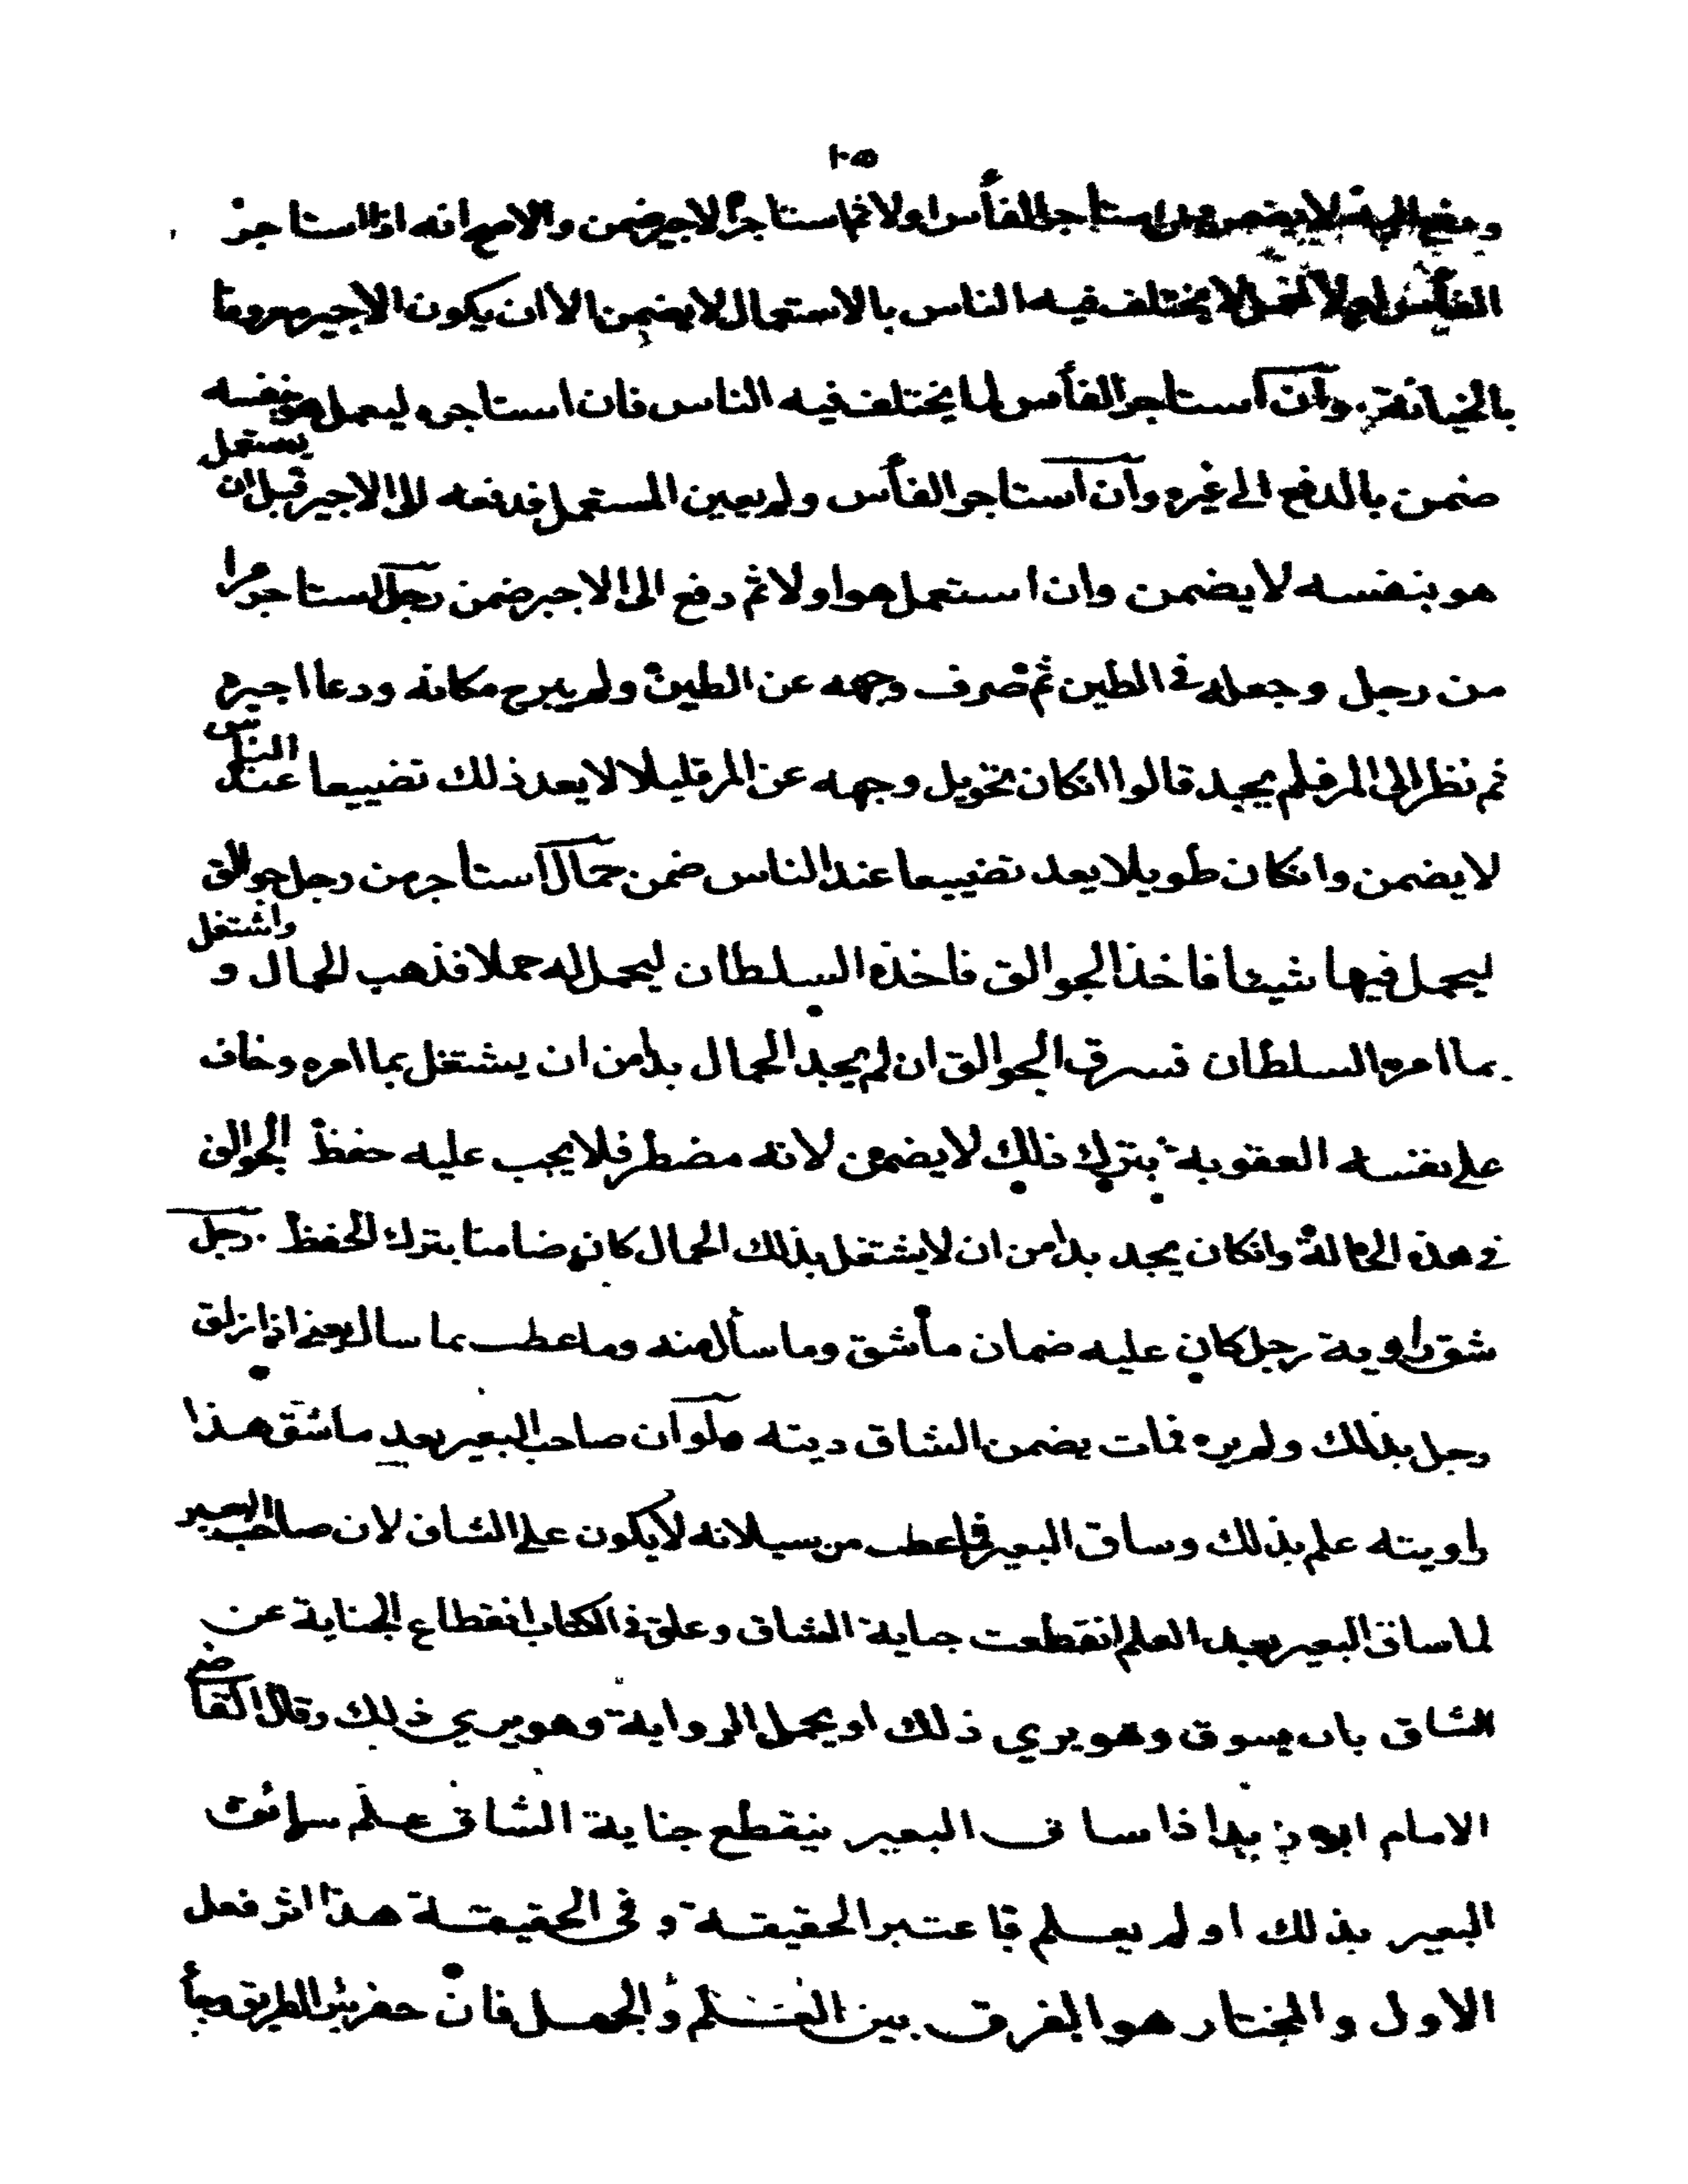 ١٠٥
ودفع اليه لا يضمن وان استاجر الفأس اولا ثم استاجر الاجير ضمن والاصح انه اذا استاجر
الفأس اولا لعمل لا يختلف فيه الناس بالاستعمال لا يضمن الا ان يكون الاجير معروفا
بالخيانة وان استاجر الفأس لما يختلف فيه الناس فان استاجره ليعمل هو بنفسه
ضمن بالدفع الى غيره وان استاجر الفأس ولم يعين المستعمل فدفعه الى الاجير قبل ان يستعمل
هو بنفسه لا يضمن وان استعمل هو اولا ثم دفع الى الاجير ضمن رجل استاجر مرا
من رجل وجعله في الطين ثم صرف وجهه عن الطين ولم يبرح مكانه ودعا اجيره
ثم نظر الى المر فلم يجد قالوا انكان تحويل وجهه عن المر قليلا لا يعد ذلك تضييعا عند الناس
لا يضمن وانكان طويلا يعد تضييعا عند الناس ضمن حمال استاجر من رجل جوالق
ليحمل فيها شيئا فاخذ الجوالق فاخذه السلطان ليحمل له حملا فذهب الحمال و واشتغل
بما امره السلطان فسرق الجوالق ان لم يجد الحمال بدا من ان يشتغل بما امره وخاف
على نفسه العقوبة بترك ذلك لا يضمن لانه مضطر فلا يجب عليه حفظ الجوالق
في هذه الحالة وانكان يجد بدا من ان لا يشتغل بذلك الحمال كان ضامنا بترك الحفظ . رجل
شق راوية رجل كان عليه ضمان ما شق وما سأل منه وما عطب بما سال يعني اذا زلق
رجل بذلك ولم يره فمات يضمن الشاق ديته ولو ان صاحب البعير بعد ما شق هذا
راويته علم بذلك وساق البعير فما عطب من سيلانه لا يكون على الشاق لان صاحب البعير
لما ساق البعير بعد العلم انقطعت جناية الشاق وعلق في الكتاب انقطاع الجناية عن
الشاق بان يسوق وهو يرى ذلك او يحمل الرواية وهو يرى ذلك وقال القاضي
الامام ابو زيد اذا ساق البعير ينقطع جناية الشاق علم سائق
البعير بذلك او لم يعلم فاعتبر الحقيقة وفي الحقيقة هذا اثر فعل
الاول والمختار هو الفرق بين العلم والجهل فان حفر بئر الطريق